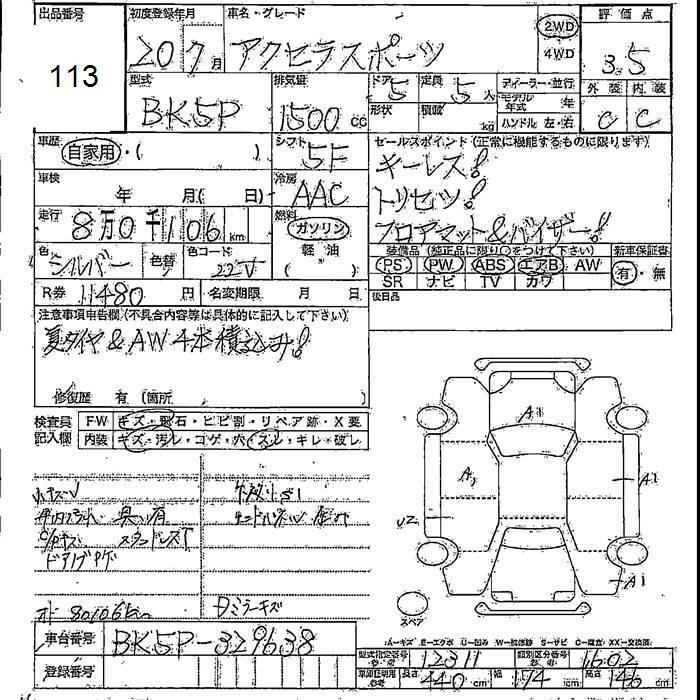 出品番号
113
初度登録年月
20 7月
車名・グレード
アクセラスポーツ
2WD
4WD
評価点
3.5
外装 内装
C C
型式
BK5P
排気量
1500 cc
ドア 5
定員 5人
形状
積載 kg
ディーラー・並行
モデル年式 年
ハンドル 左・右
車歴
自家用・( )
シフト
5F
セールスポイント (正常に機能するものに限ります)
キーレス!
トリセツ!
フロアマット&バイザー!
車検
年 月( 日)
冷房
AAC
走行
8万0千106km
燃料
ガソリン
軽油
( )
色
シルバー
色替
色コード
22V
装備品 (純正品に限り○をつけて下さい)
PS PW ABS エアB AW
SR ナビ TV カワ
新車保証書
有・無
R券 11480円
名変期限 月 日
後日品
注意事項申告欄(不具合内容等は具体的に記入して下さい)
夏タイヤ&AW4本積込み!
修復歴 有 (箇所 )
検査員記入欄
FW キズ・飛石・ヒビ割・リペア跡・X要
内装 キズ・汚レ・コゲ・穴・スレ・キレ・破レ
A1
A1
A1
A1
U2
スペア
オド 80106km
ミラーキズ
A-キズ E-エクボ U-凹み W-補修跡 S-サビ C-腐食 XX-交換済
車台番号
BK5P-329638
登録番号
型式指定番号 12311
類別区分番号 1602
長さ 440cm
幅 174cm
高さ 146cm